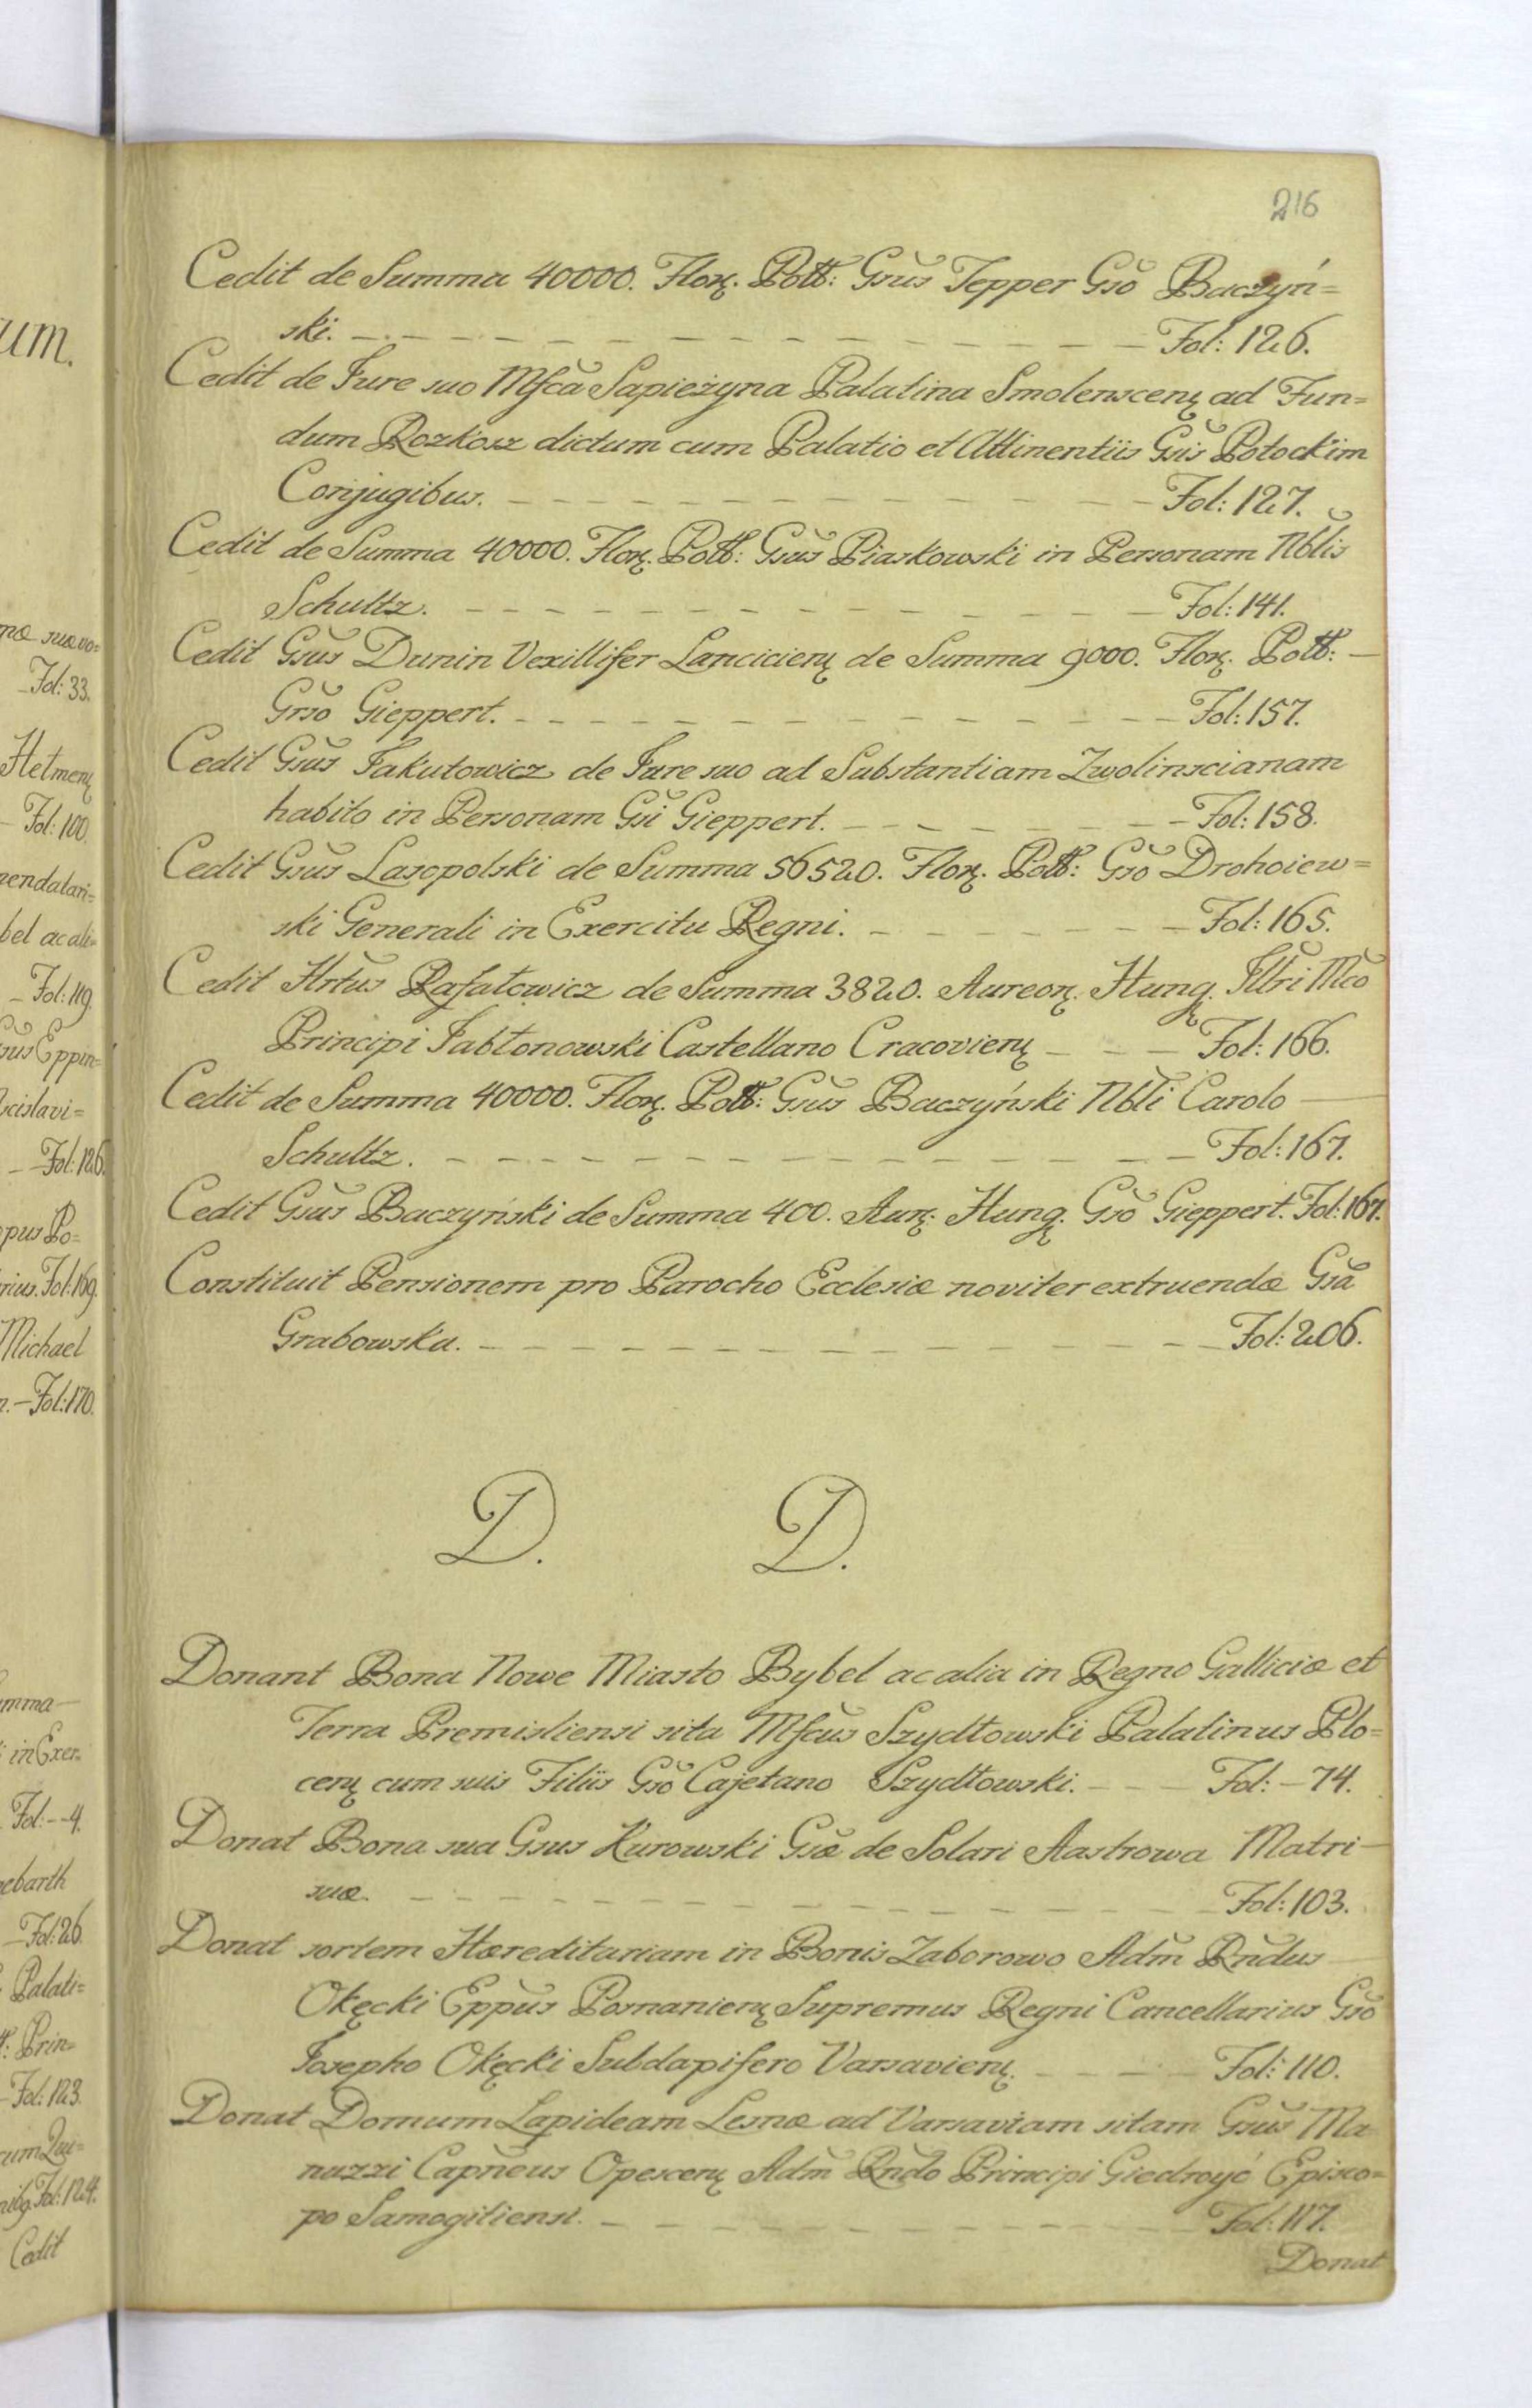 216
Cedit de Summa 40000. Flor. Poll: Gsūs Tepper Gsō Baczyń=
ski. Fol: 126.
Cedit de Iure suo Mfcā Sapieżyna Palatina Smolenscen̄ ad Fun=
dum Rozkosz dictum cum Palatio et Attinentiis Gsīs Potockim
Conjugibus. Fol: 127.
Cedit de Summa 40000. Flor. Poll: Gsūs Piaskowski in Personam Nblīs
Schultz. Fol: 141.
Cedit Gsūs Dunin Vexillifer Lancicien̄ de Summa 9000. Flor. Poll:
Grsō Gieppert. Fol: 157.
Cedit Gsūs Jakutowicz de Iure suo ad Substantiam Zwolinscianam
habito in Personam Gsī Gieppert. Fol: 158.
Cedit Gsūs Lasopolski de Summa 56520. Flor. Poll: Gsō Drohoiew=
ski Generali in Exercitu Regni. Fol: 165.
Cedit Hrtūs Rafałowicz de Summa 3820. Aureor. Hung. Illri Mcō
Principi Jabłonowski Castellano Cracovien̄ Fol: 166.
Cedit de Summa 40000. Flor. Poll: Gsūs Baczyński Nblī Carolo
Schultz. Fol: 167.
Cedit Gsūs Baczyński de Summa 400. Aur: Hung. Gsō Gieppert. Fol: 167.
Constituit Pensionem pro Parocho Ecclesiæ noviter extruendæ Gsā
Grabowska. Fol: 206.
D. D.
Donant Bona Nowe Miasto Bybel ac alia in Regno Galliciæ et
Terra Premisliensi sita Mfcūs Szydłowski Palatinus Plo=
cen̄ cum suis Filiis Gsō Cajetano Szydłowski. Fol: 74.
Donat Bona sua Gsus Kurowski Gsæ de Solari Aastrowa Matri
suæ. Fol: 103.
Donat sortem Hæreditariam in Bonis Zaborowo Adm̄ Rn̄dus
Okęcki Epp̄us Posnanien̄ Supremus Regni Cancellarius Gsō
Josepho Okęcki Subdapifero Varsavien̄. Fol: 110.
Donat Domum Lapideam Lesnæ ad Varsaviam sitam Gsūs Ma
nuzzi Capn̄eus Opescen̄ Adm̄ Rn̄do Principi Giedroyć Episco=
po Samogitiensi. Fol: 117.
Donat